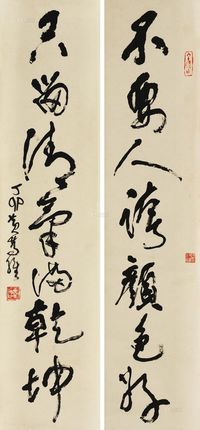 不要人誇顏色好
只留清氣滿乾坤
丁卯黃篤維